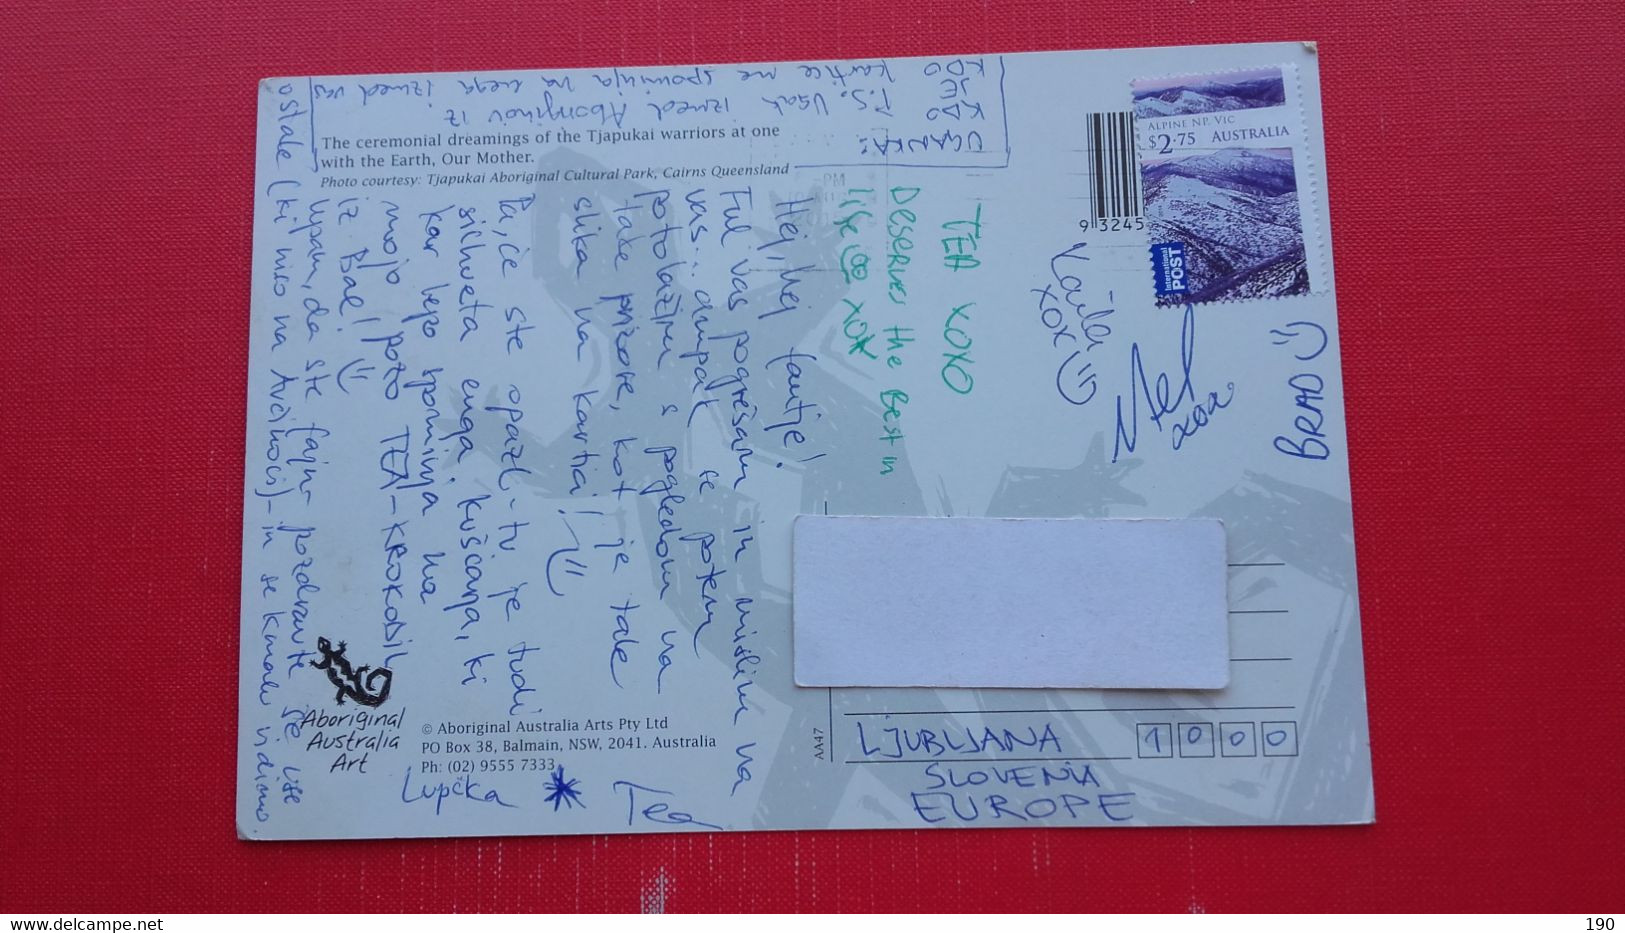 The ceremonial dreamings of the Tjapukai warriors at one
with the Earth, Our Mother.
Photo courtesy: Tjapukai Aboriginal Cultural Park, Cairns Queensland
UGANKA:
KDO
JE
KDO
P.S. Vsak izmed Aborginov iz
kartice me spominja na enega izmed vas
Hej, hej fantje!
Ful vas pogrešam in mislim na
vas... ampak se potem
potolažim s pogledom na
take prizore, kot je tale
slika na kartici!
Pa, če ste opazl- tu je tudi
silhueta enga kuščarja, ki
kar lepo spominja na
mojo pozo TEA-KROKODIL
iz Bae!
Upam, da ste fajn- pozdravte še vse
ostale (ki niso na
)- in se kmalu vidimo.
Lupčka
Tea
TEA XOXO
Deserves the Best in
life
XOX
Kaila
XOX
xoa
BRAD
ALPINE NP, VIC
$2.75 AUSTRALIA
International
POST
9 3245
PM
Aboriginal
Australia
Art
© Aboriginal Australia Arts Pty Ltd
PO Box 38, Balmain, NSW, 2041. Australia
Ph: (02) 9555 7333
AA47
LJUBLJANA 1000
SLOVENIA
EUROPE
delcampe.net
190